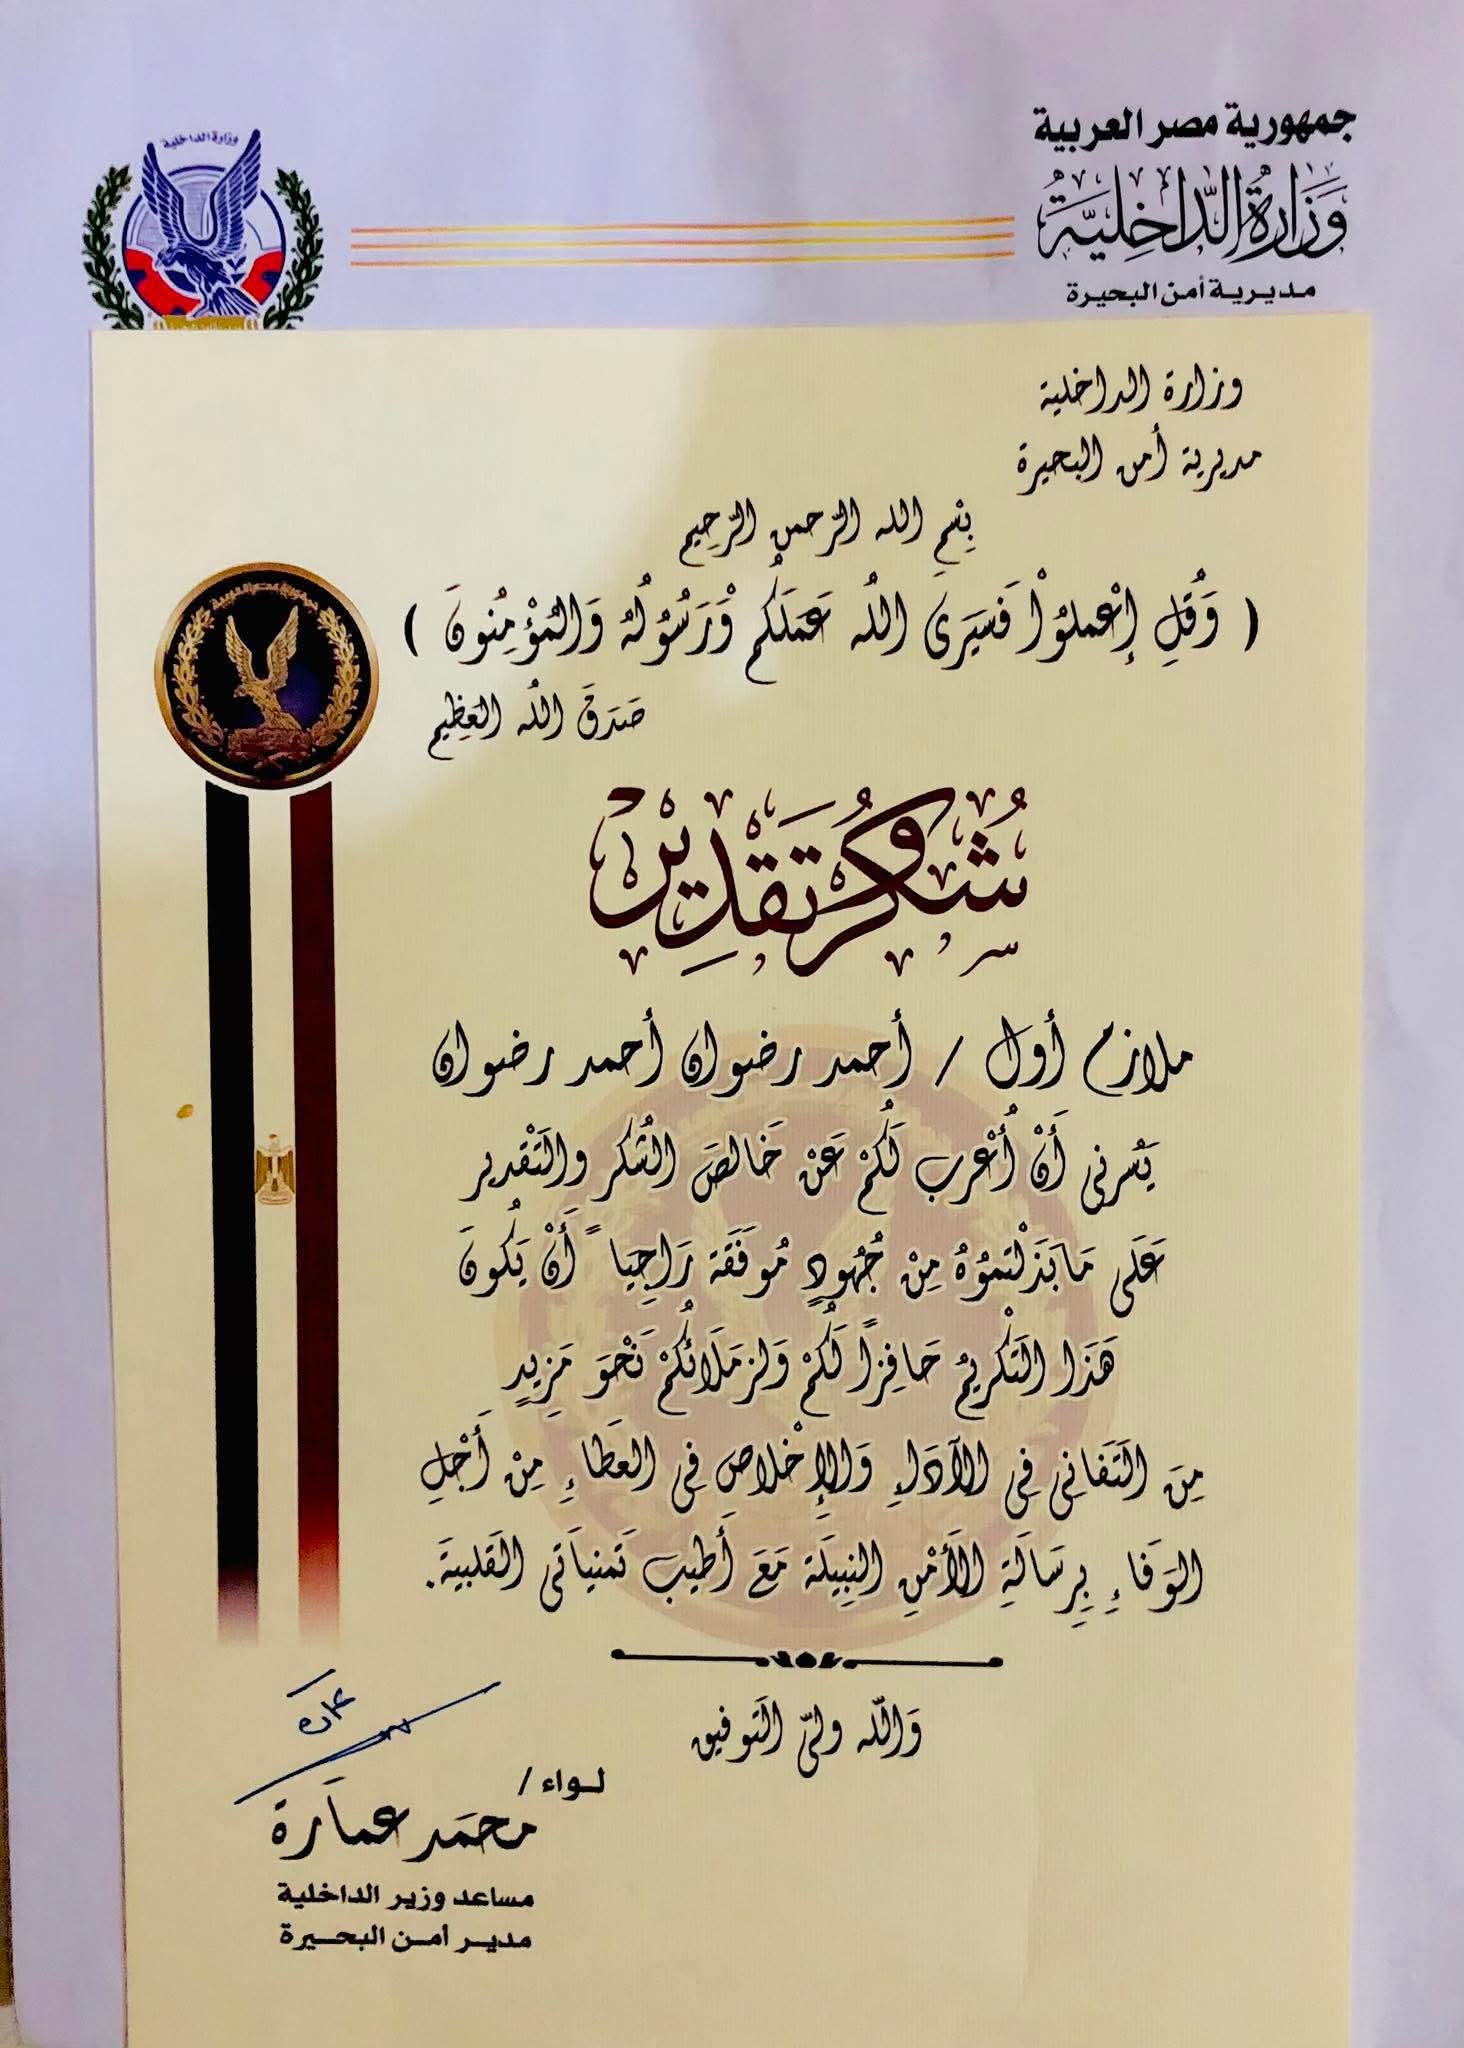 جمهورية مصر العربية
وَزَارَةُ الدَّاخِلِيَّةُ
مديرية أمن البحيرة
وزارة الداخلية
وزارة الداخلية
مديرية أمن البحيرة
بِسْمِ الله الرّحمنِ الرّحِيم
( وَقُلِ إعْملوُاْ فَسَيَرىَ اللُه عَمَلَكُمْ وَرَسُولُهُ وَالمُؤْمِنُونَ )
صَدَقَ اللُه العَظِيم
جمهورية مصر العربية
شُكْر و تَقْدِير
ملازم أول / أحمد رضوان أحمد رضوان
يَسُرنى أَنْ أُعْرب لَكُمْ عَنْ خَالصَ الشُكر والتَقْدير
عَلَى مَابَذلْتموُهُ مِنْ جُهُودٍ مُوَفَقَة رَاجِيا ً أَنْ يَكُونَ
هَذَا التَكْريمُ حَافِزاً لَكُمْ وَلزمَلَائكُمْ نَحْوَ مَزِيدٍ
مِنَ التَفَانِى فِى الآدَاءِ وَالإخْلاص فِى العَطَاءِ مِنْ أَجْلِ
الوَفَاءِ بِرِسَالَةِ الأَمْنِ النبِيلَة مَعَ أَطيب تَمنيَاتَى القَلبيَة.
وَاللّه ولىّ التَوفيق
لواء /
محمَد عمَارة
مساعد وزير الداخلية
مدير أمن البحيرة